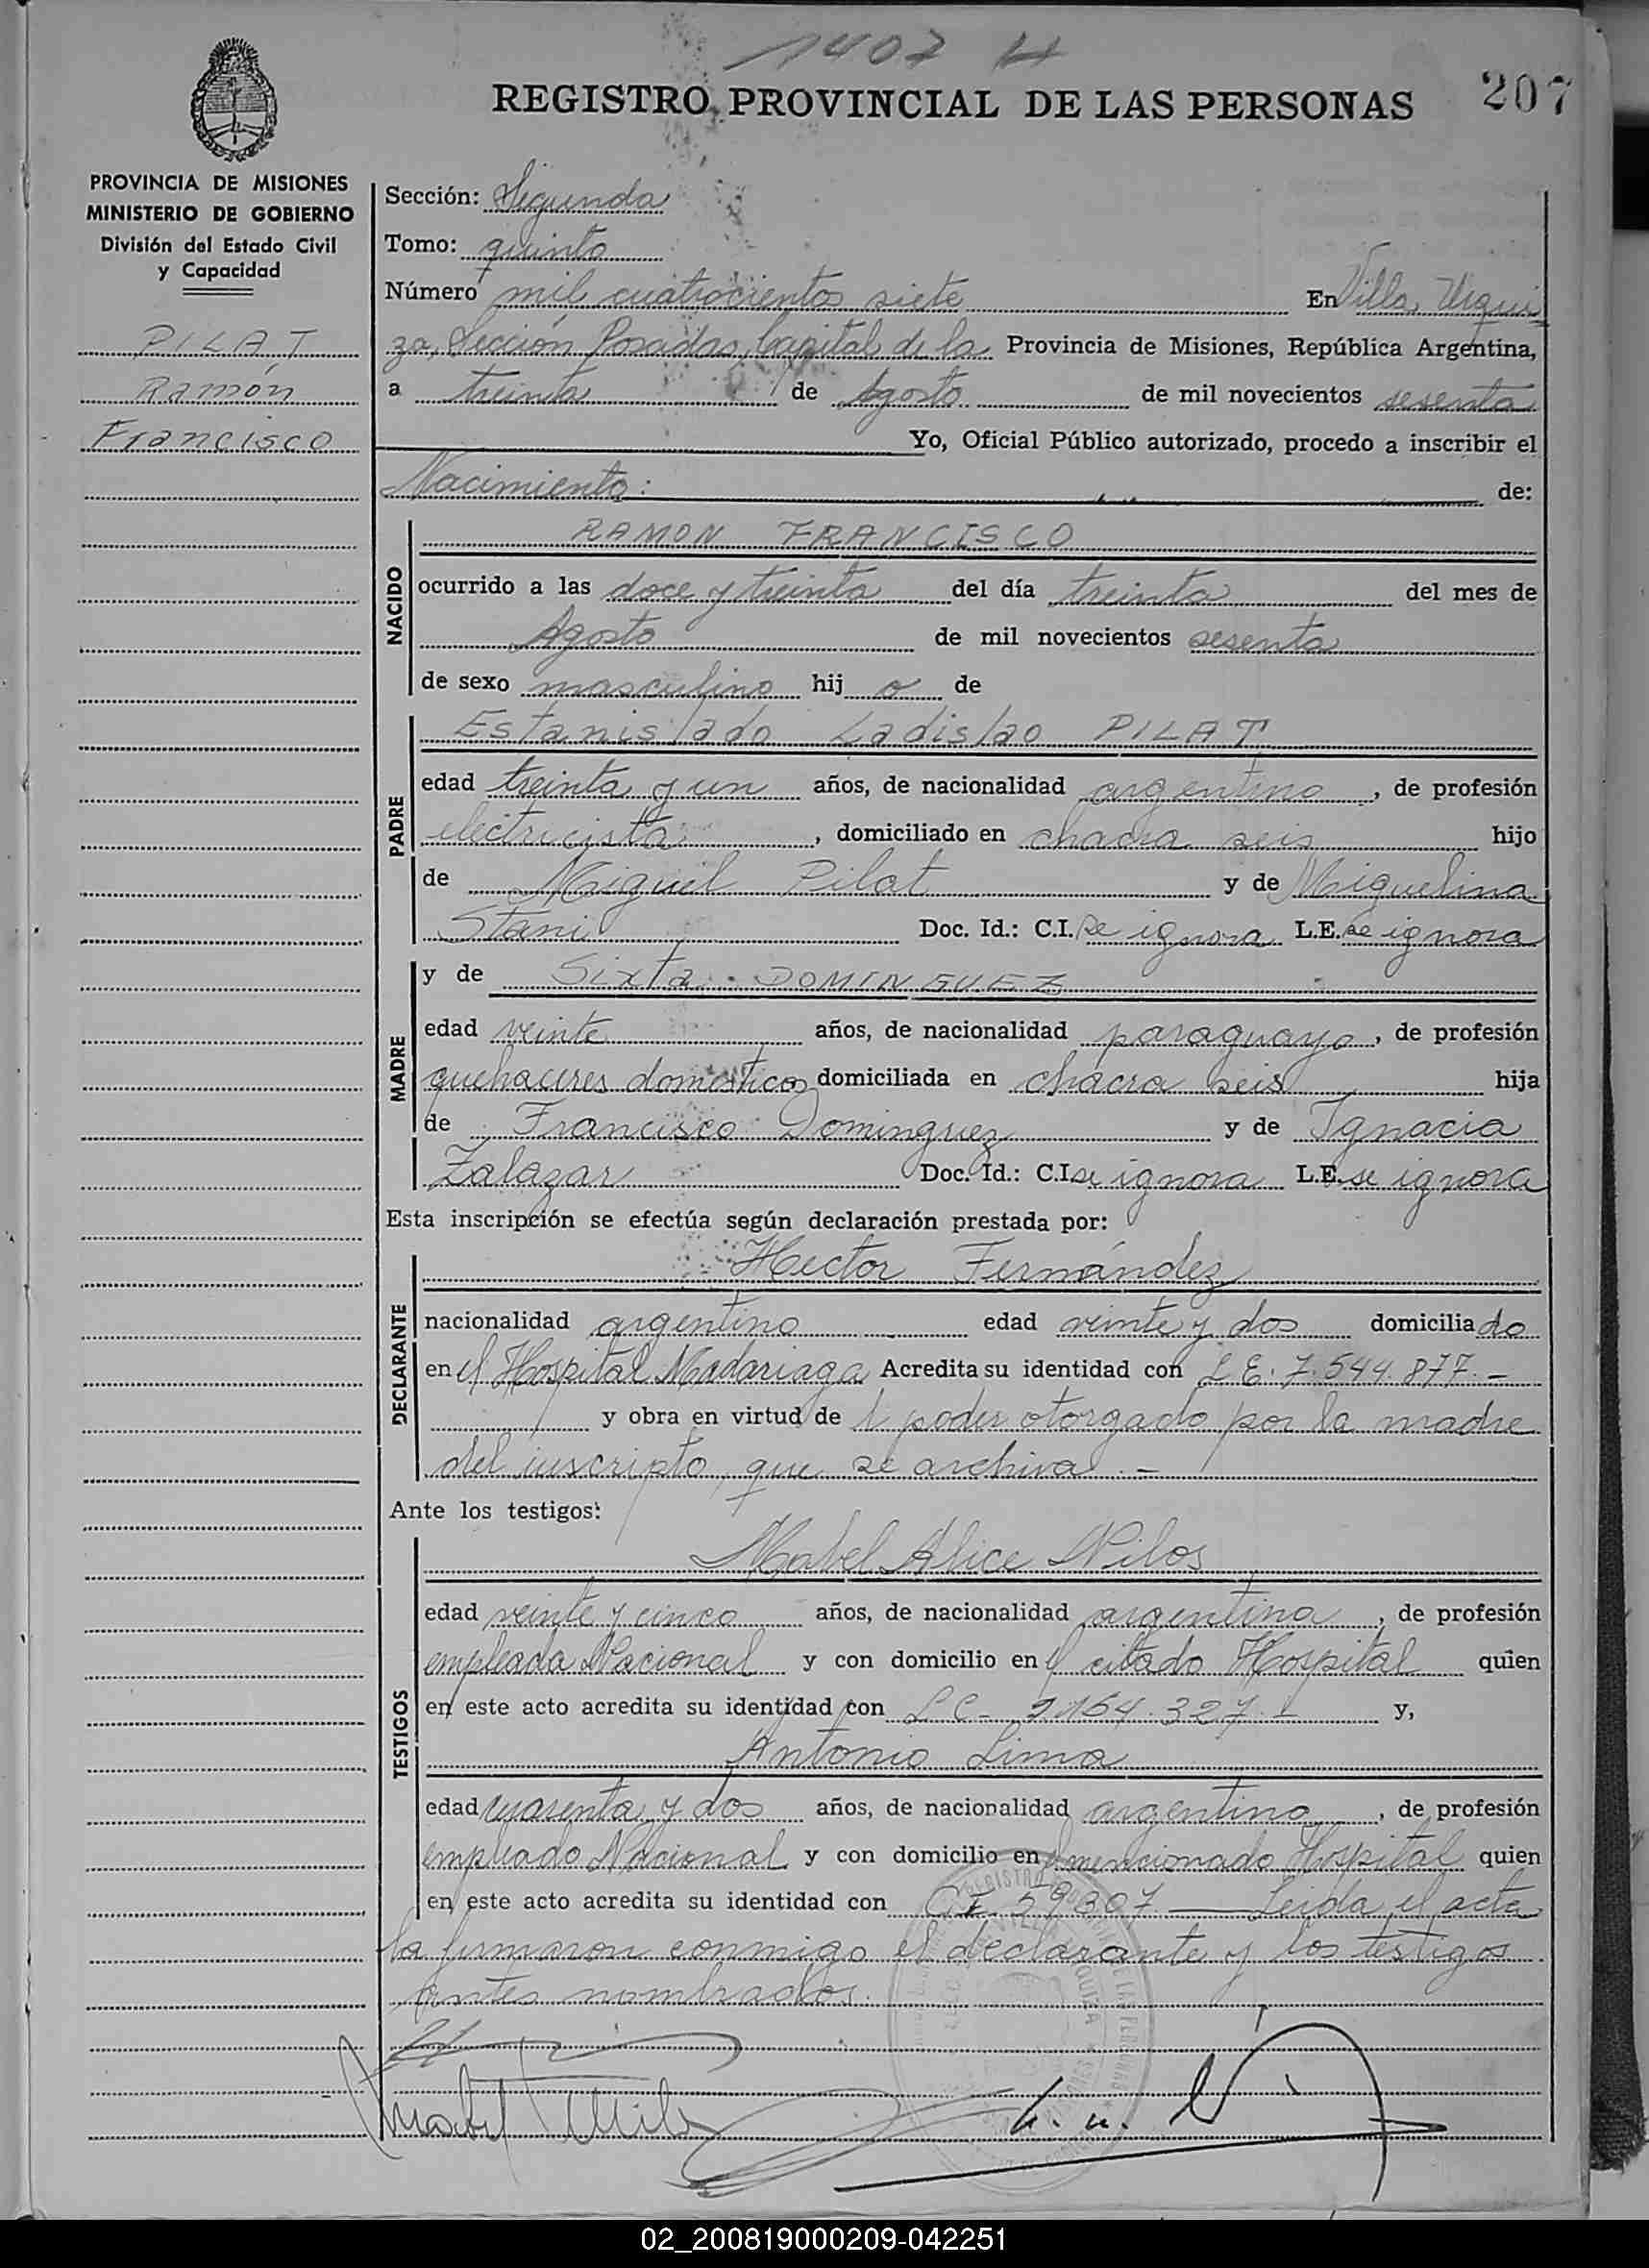 1407 H
REGISTRO PROVINCIAL DE LAS PERSONAS
207
PROVINCIA DE MISIONES
MINISTERIO DE GOBIERNO
División del Estado Civil
y Capacidad
PILAT
Ramón
Francisco
Sección: Segunda
Tomo: quinto
Número mil cuatrocientos siete En Villa Urqui
za, Sección Posadas, Capital de la Provincia de Misiones, República Argentina,
a treinta de Agosto de mil novecientos sesenta
Yo, Oficial Público autorizado, procedo a inscribir el
Nacimiento: de:
NACIDO
RAMON FRANCISCO
ocurrido a las doce y treinta del día treinta del mes de
Agosto de mil novecientos sesenta
de sexo masculino hij o de
PADRE
Estanislado Ladislao PILAT
edad treinta y un años, de nacionalidad argentino, de profesión
electricista, domiciliado en chacra seis hijo
de Miguel Pilat y de Miguelina
Stani Doc. Id.: C.I. se ignora L.E. se ignora
MADRE
y de Sixta DOMINGUEZ
edad veinte años, de nacionalidad paraguaya, de profesión
quehaceres domésticos domiciliada en chacra seis hija
de Francisco Dominguez y de Ignacia
Zalazar Doc. Id.: C.I. se ignora L.E. se ignora
Esta inscripción se efectúa según declaración prestada por:
DECLARANTE
Hector Fernández
nacionalidad argentino edad veinte y dos domiciliado
en el Hospital Madariaga Acredita su identidad con L.E. 7.544.877.-
y obra en virtud de 1 poder otorgado por la madre
del inscripto, que se archiva.-
Ante los testigos:
TESTIGOS
Mabel Alice Nilos
edad veinte y cinco años, de nacionalidad argentina, de profesión
empleada Nacional y con domicilio en el citado Hospital quien
en este acto acredita su identidad con L.C. 164.327 y,
Antonio Lima
edad cuarenta y dos años, de nacionalidad argentino, de profesión
empleado Nacional y con domicilio en mencionado Hospital quien
en este acto acredita su identidad con 59807 Leida el acta
la firmaron conmigo el declarante y los testigos
antes nombrados.
02_200819000209-042251